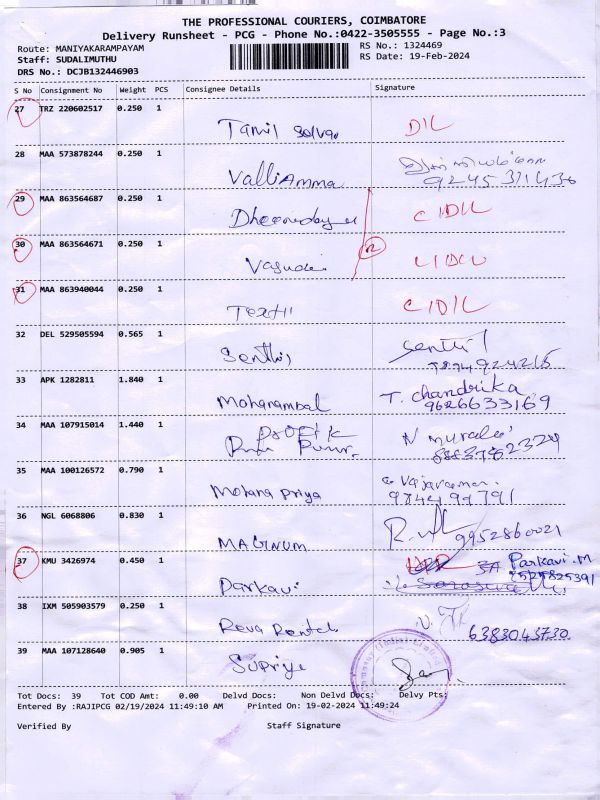 THE PROFESSIONAL COURIERS, COIMBATORE
Delivery Runsheet - PCG - Phone No.:0422-3505555 - Page No.:3
Route: MANIYAKARAMPAYAM RS No.: 1324469
Staff: SUDALIMUTHU RS Date: 19-Feb-2024
DRS No.: DCJB132446903
S No Consignment No Weight PCS Consignee Details Signature
27 TRZ 220602517 0.250 1
Tamil Selvan DIL
28 MAA 573878244 0.250 1
ValliAmma
29 MAA 863564687 0.250 1
CIDIL
30 MAA 863564671 0.250 1
31 MAA 863940044 0.250 1
CIDIL
32 DEL 529505594 0.565 1
Senthil Senthil
33 APK 1282811 1.840 1
Mohanambal T. Chandrika
9626633169
34 MAA 107915014 1.440 1
N Murali
35 MAA 100126572 0.790 1
Mohana Priya
36 NGL 6068806 0.830 1
MAGNUM 9952860021
37 KMU 3426974 0.450 1
Parkavi Parkavi.M
38 IXM 505903579 0.250 1
Reva Rental 6383043730
39 MAA 107128640 0.905 1
Supriya
Tot Docs: 39 Tot COD Amt: 0.00 Delvd Docs: Non Delvd Docs: Delvy Pts:
Entered By :RAJIPCG 02/19/2024 11:49:10 AM Printed On: 19-02-2024 11:49:24
Verified By Staff Signature